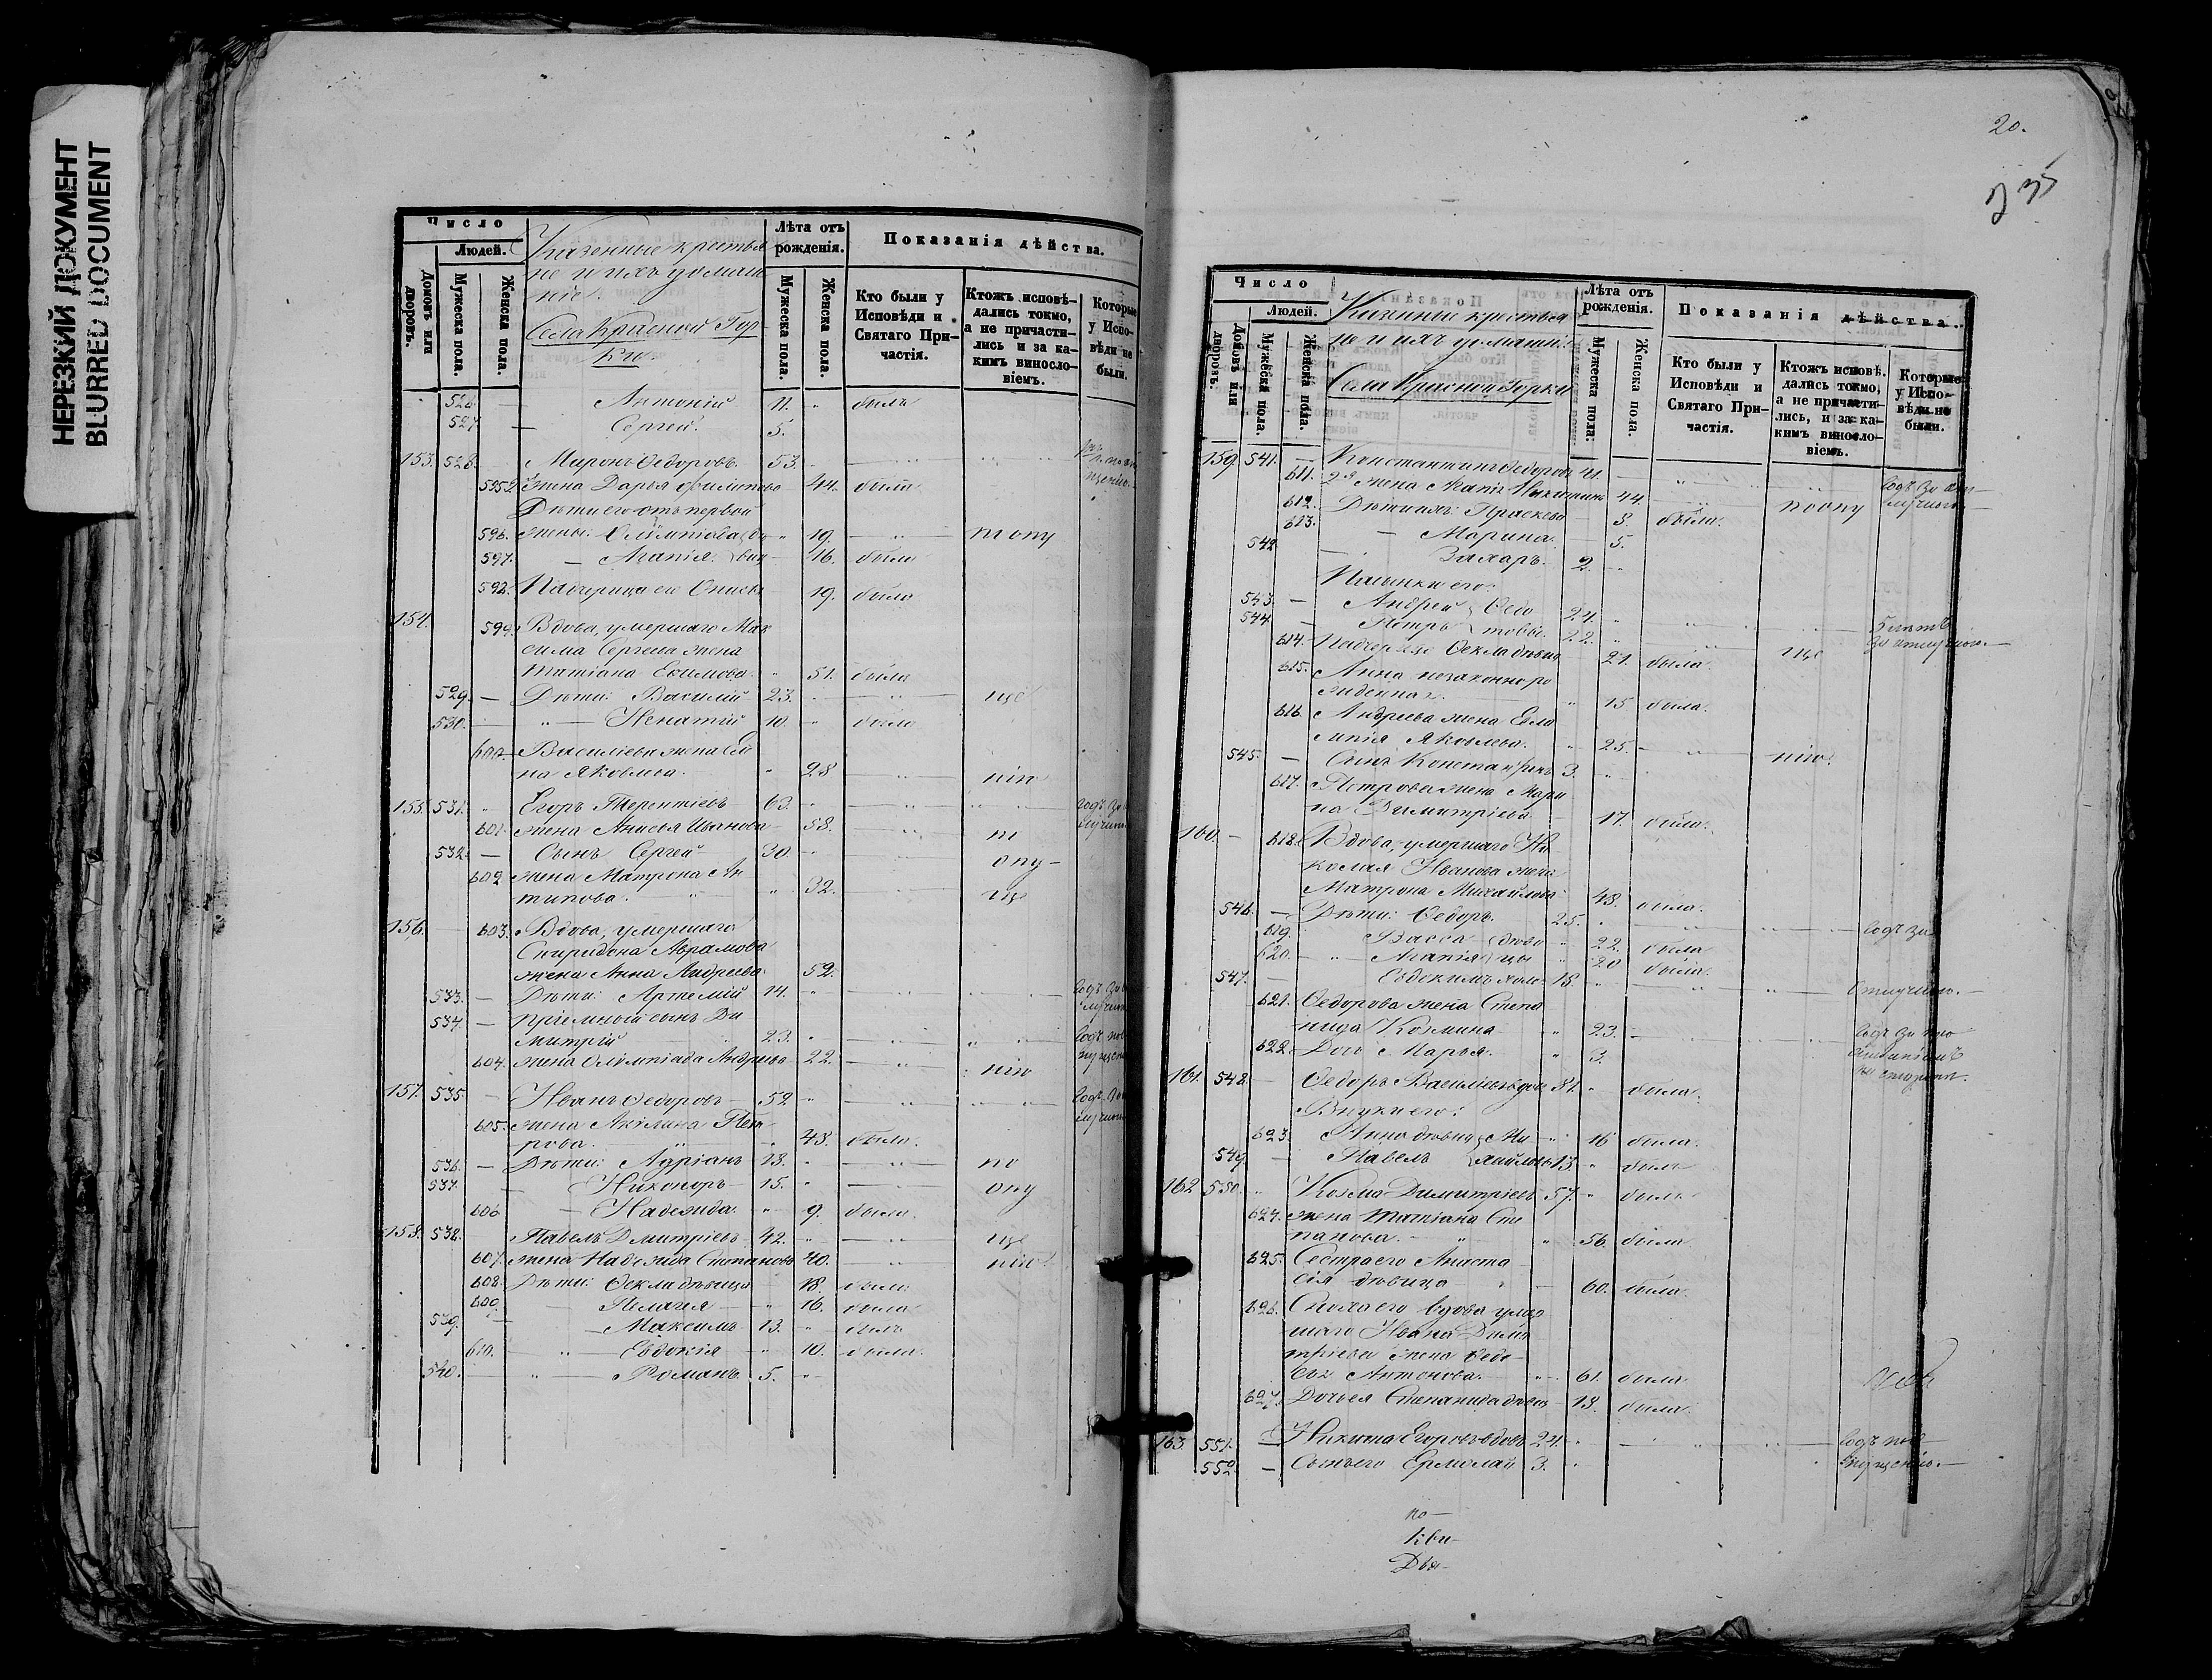 НЕРЕЗКИЙ ДОКУМЕНТ
BLURRED DOCUMENT
Число
Людей.
Домовъ или дворовъ.
Мужеска пола.
Женска пола.
Казенные крестья
не и ихъ домаш
ніе.
Села Красной Гор
ки
Лѣта отъ рожденія.
Мужеска пола.
Женска пола.
Показанія дѣйства.
Кто были у Исповѣди и Святаго При-
частія.
Ктожъ исповѣ-
дались токмо,
а не причасти-
лись и за ка-
кимъ виносло-
віемъ.
Которые
у Испо-
вѣди не
были.
526. — Антоній 11. " былъ
527 — Сергей. 5.
153. 528. — Миронъ Ѳедоровъ. 53.
595. жена Дарья Филипова 44. была
Дѣти его отъ первой
596. жены: Олимпіада 19. — " — по опу
597. — Агапія 16. была
598. Падчерица его Анисья 19. была
154. 599. Вдова, умершаго Мак
сима Сергеева жена
Татіана Екимова. 51. была
529. — Дѣти: Василій 23. — " — ще
530. " — Игнатій 10. " былъ
600. Василіева жена Еле
на Яковлева. " 28 — " — нію
155. 531. " Егоръ Терентіевъ 63. годъ за от
601. жена Анисья Иванова 58. — " — п
лучкою
532. — Сынъ Сергей 30. опу-
602. жена Матрона Ан
типова. " 32. ще
156. 603. Вдова, умершаго
Спиридона Аврамова
жена Анна Андреева 52.
533. — Дѣти: Артемій 14.
534. — Пріемный сынъ Ди
митрій 23.
604. жена Олимпіада Андреева 22. — " — нію
157. 535. — Иванъ Ѳедоровъ 52
605. жена Акилина Пет
рова. " 48. была.
536. — Дѣти: Адріанъ 18. — по
537. — Никоноръ 15. — опу
606. — Надежда. " 9. была.
158. 538. Павелъ Дмитріевъ 42. — " — ще
607. жена Надежда Степанова 40. — " — нію
608. Дѣти: Ѳекла дѣвица 18. была
609. — Пелагея 16. была
539. — Максимъ 13. былъ
610. — " — Евдокія 10. была.
540. — " — Романъ 5.
20.
235
Число
Людей.
Домовъ или дворовъ.
Мужеска пола.
Женска пола.
Казенные крестья
не и ихъ домашн.
Села Красной Горки
Лѣта отъ рожденія.
Мужеска пола.
Женска пола.
Показанія дѣйства.
Кто были у
Исповѣди и
Святаго При-
частія.
Ктожъ исповѣ.
дались токмо,
а не причасти-
лись, и за ка-
кимъ виносло-
віемъ.
Которые
у Испо-
вѣди не
были.
159. 541. — Константинъ Ѳедоровъ
611. 2я жена Агапія Никитина 44. — " — по опу
612. Дѣти ихъ: Праскева 8. была.
613. — Марина. 5.
542 — Захаръ. 2.
Пасынки его:
543. — Андрей Ѳедо 24.
544. — Петръ товы. 22.
614. Падчерица Ѳекла дѣвица 21. была. ще
615. Анна незаконноро
жденная. " 15 была.
616. Андреева жена Евла
мпія Яковлева. " 25. — " — нію.
545. — Сынъ Константинъ 3.
617. Петрова жена Мари
на Димитріева. 17. была.
160. — 618. Вдова, умершаго Ни
колая Иванова жена
Матрона Михайлова 48. была.
546. — Дѣти: Ѳедоръ. 25. годъ за
619. Васса дѣви 22. была
620. " Агапія цы 20 была.
547. — Евдокимъ хол. 18. отлучкою.
621. Ѳедорова жена Степа
нида Козмина " 23.
622. Дочь Марья. " 3.
161. 548. — Ѳедоръ Васильевъ вдов. 81. " былъ.
Внуки его:
623. Анна дѣвица Ми 16 была.
549 — Павелъ хайловы 13. " былъ
162 550. " Козма Димитріевъ 57. " былъ.
624. жена Татіана Сте
панова. " 56. была.
625. Сестра его Анаста
сія дѣвица 60. была.
626. Сноха его вдова умер
шаго Ивана Дими
тріева жена Ѳедо
сья Антонова. 61. была.
627. Дочь ея Степанида дѣвиц 18. была.
163. 551. — Никита Егоровъ вдовъ 24. годъ по о
552. — Сынъ его Ермолай 3. пущенію.
по-
кви-
Дья-